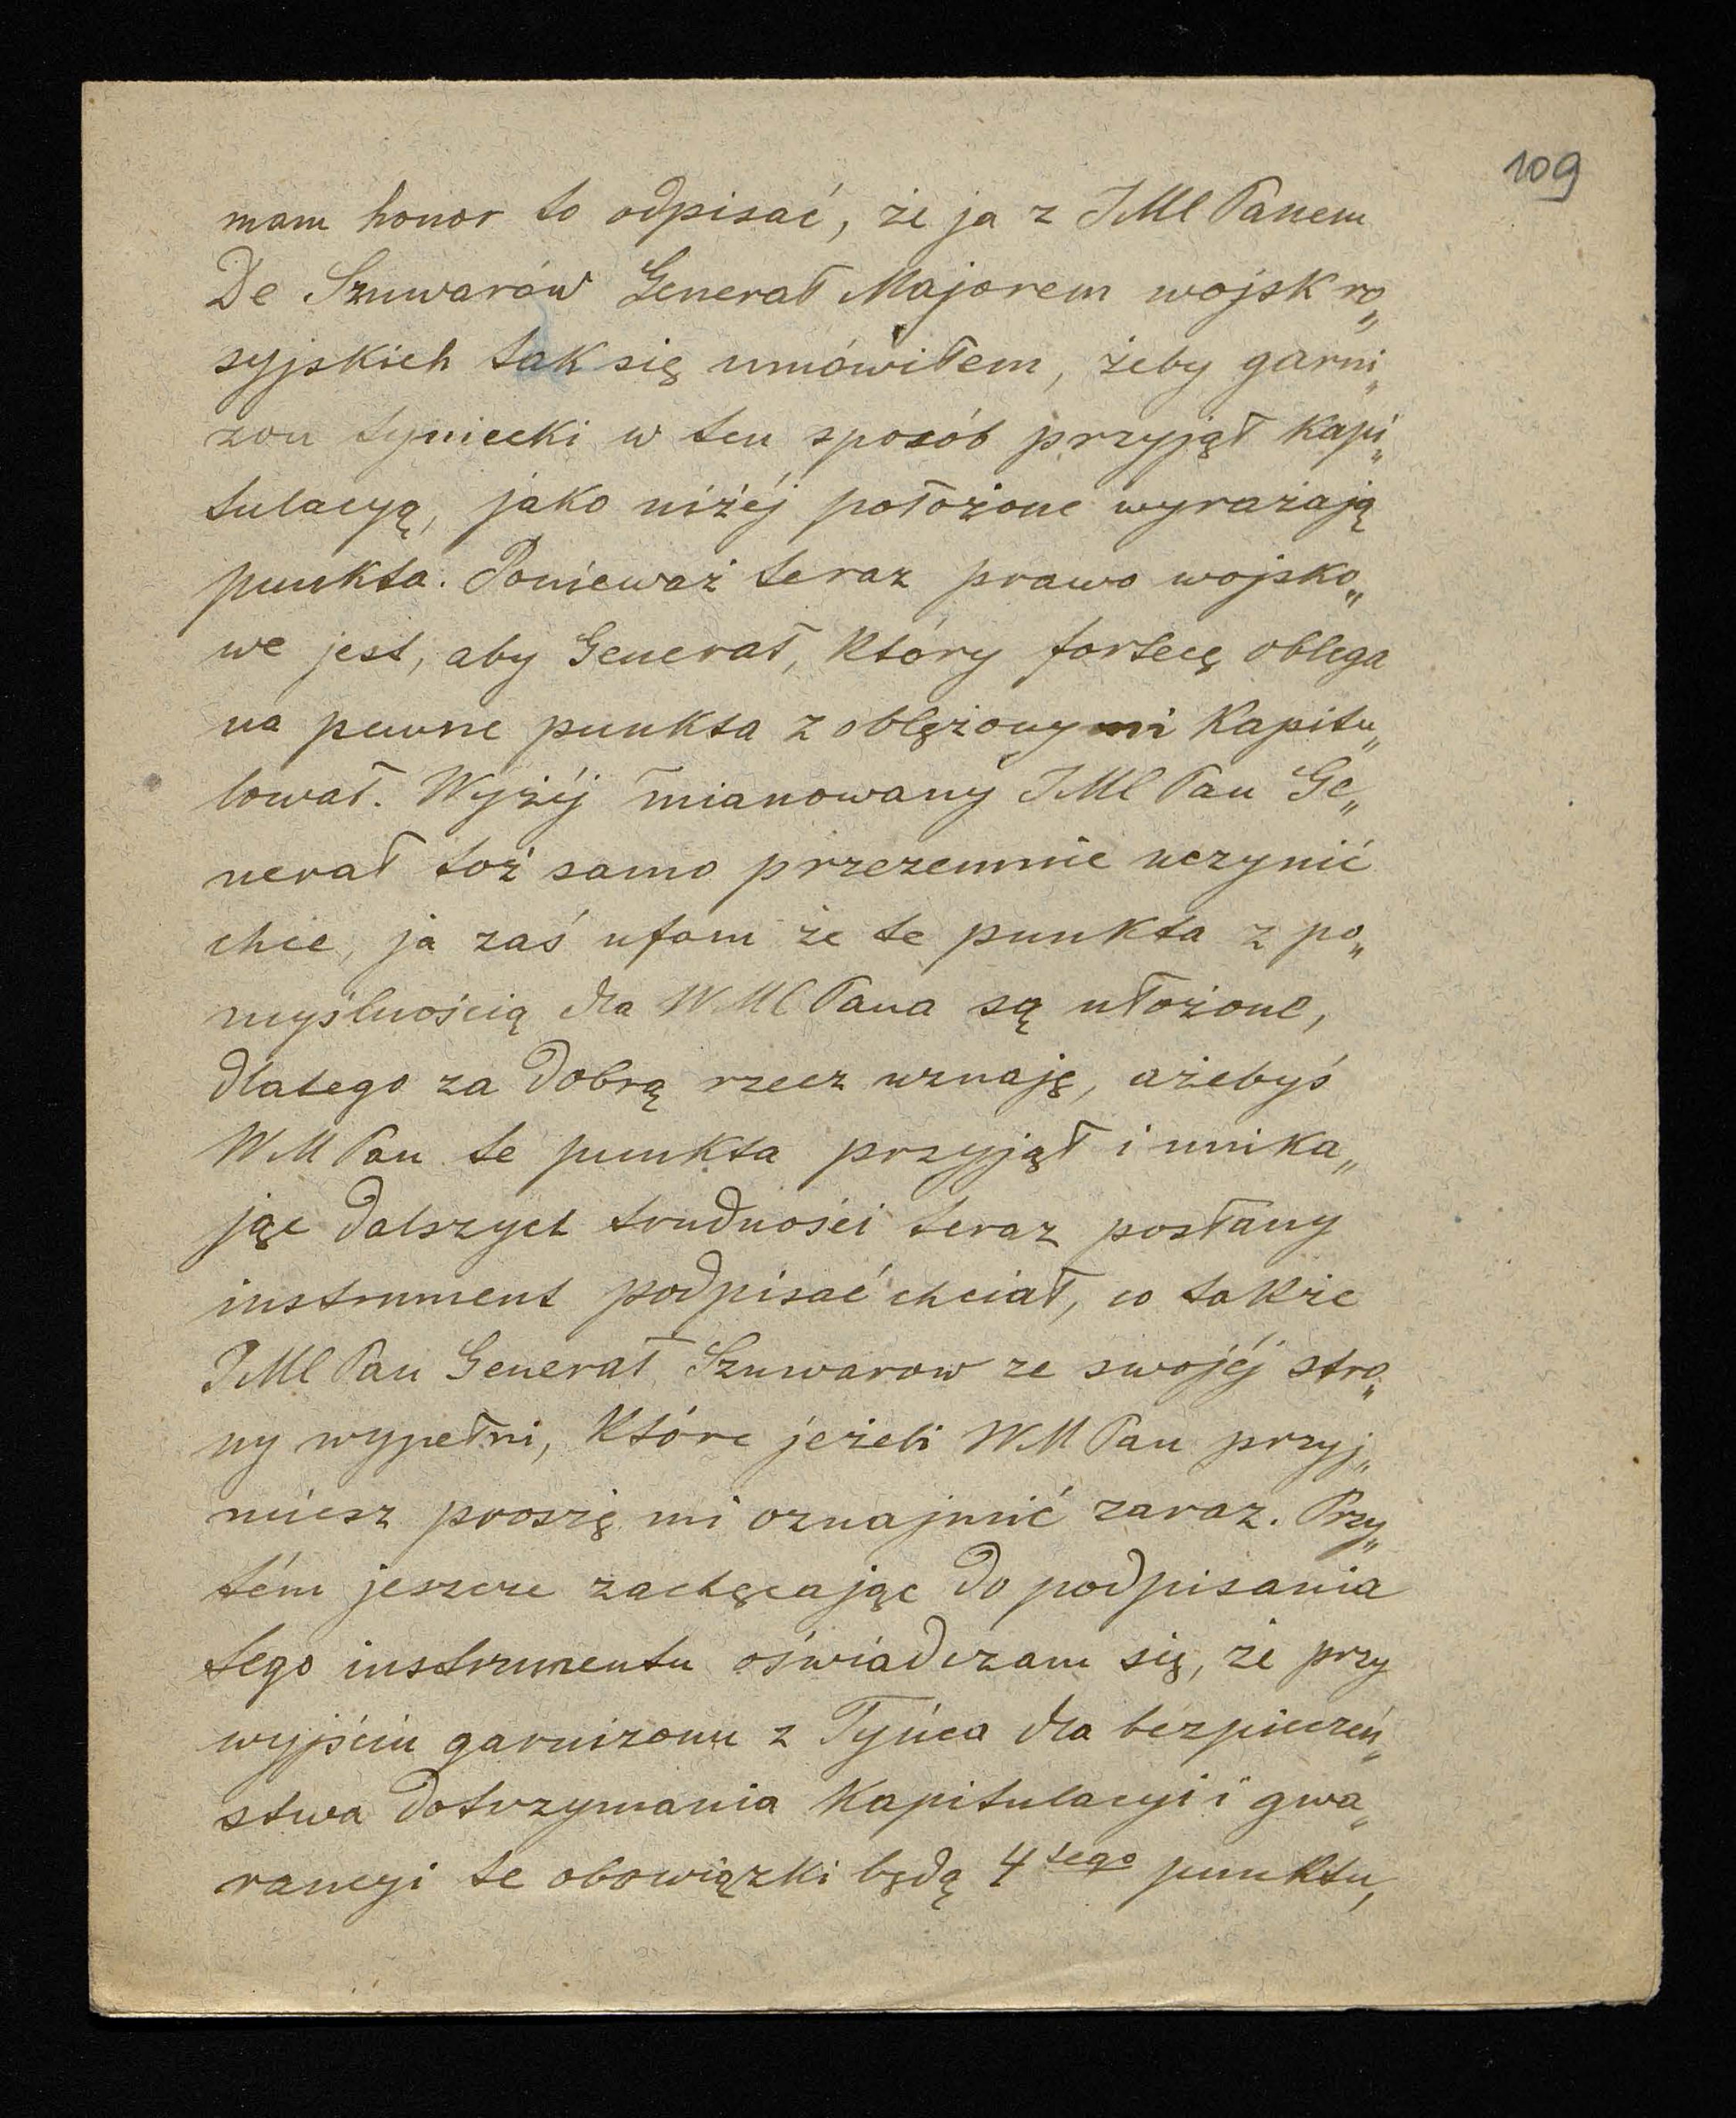 109
mam honor to odpisać, że ja z JMC Panem
De Szuwarów Generał Majorem wojsk ro„
syjskich tak się umówiłem, żeby garni„
zon tyniecki w ten sposób przyjął kapi„
tulacyą, jako niżéj położone wyrażają
punkta. Ponieważ teraz prawo wojsko„
we jest, aby Generał, który fortecę oblega
na pewne punkta z oblężonymi kapitu„
lował. Wyżéj mianowany JMC Pan Ge„
nerał toż samo przezemnie uczynić
chce, ja zaś ufam że te punkta z po„
myślnością dla WMC Pana są ułożone,
dlatego za dobrą rzecz uznaję, ażebyś
WM Pan te punkta przyjął i unika„
jąc dalszych trudności teraz posłany
instrument podpisać chciał, co także
JMC Pan Generał Szuwarow ze swojéj stro„
ny wypełni, które jeżeli WM Pan przyj„
miesz proszę mi oznajmić zaraz. Przy„
tém jeszcze zachęcając do podpisania
tego instrumentu oświadczam się, że przy
wyjściu garnizonu z Tyńca dla bezpieczeń„
stwa dotrzymania kapitulacyi i gwa„
rancyi te obowiązki będą 4tego punktu,